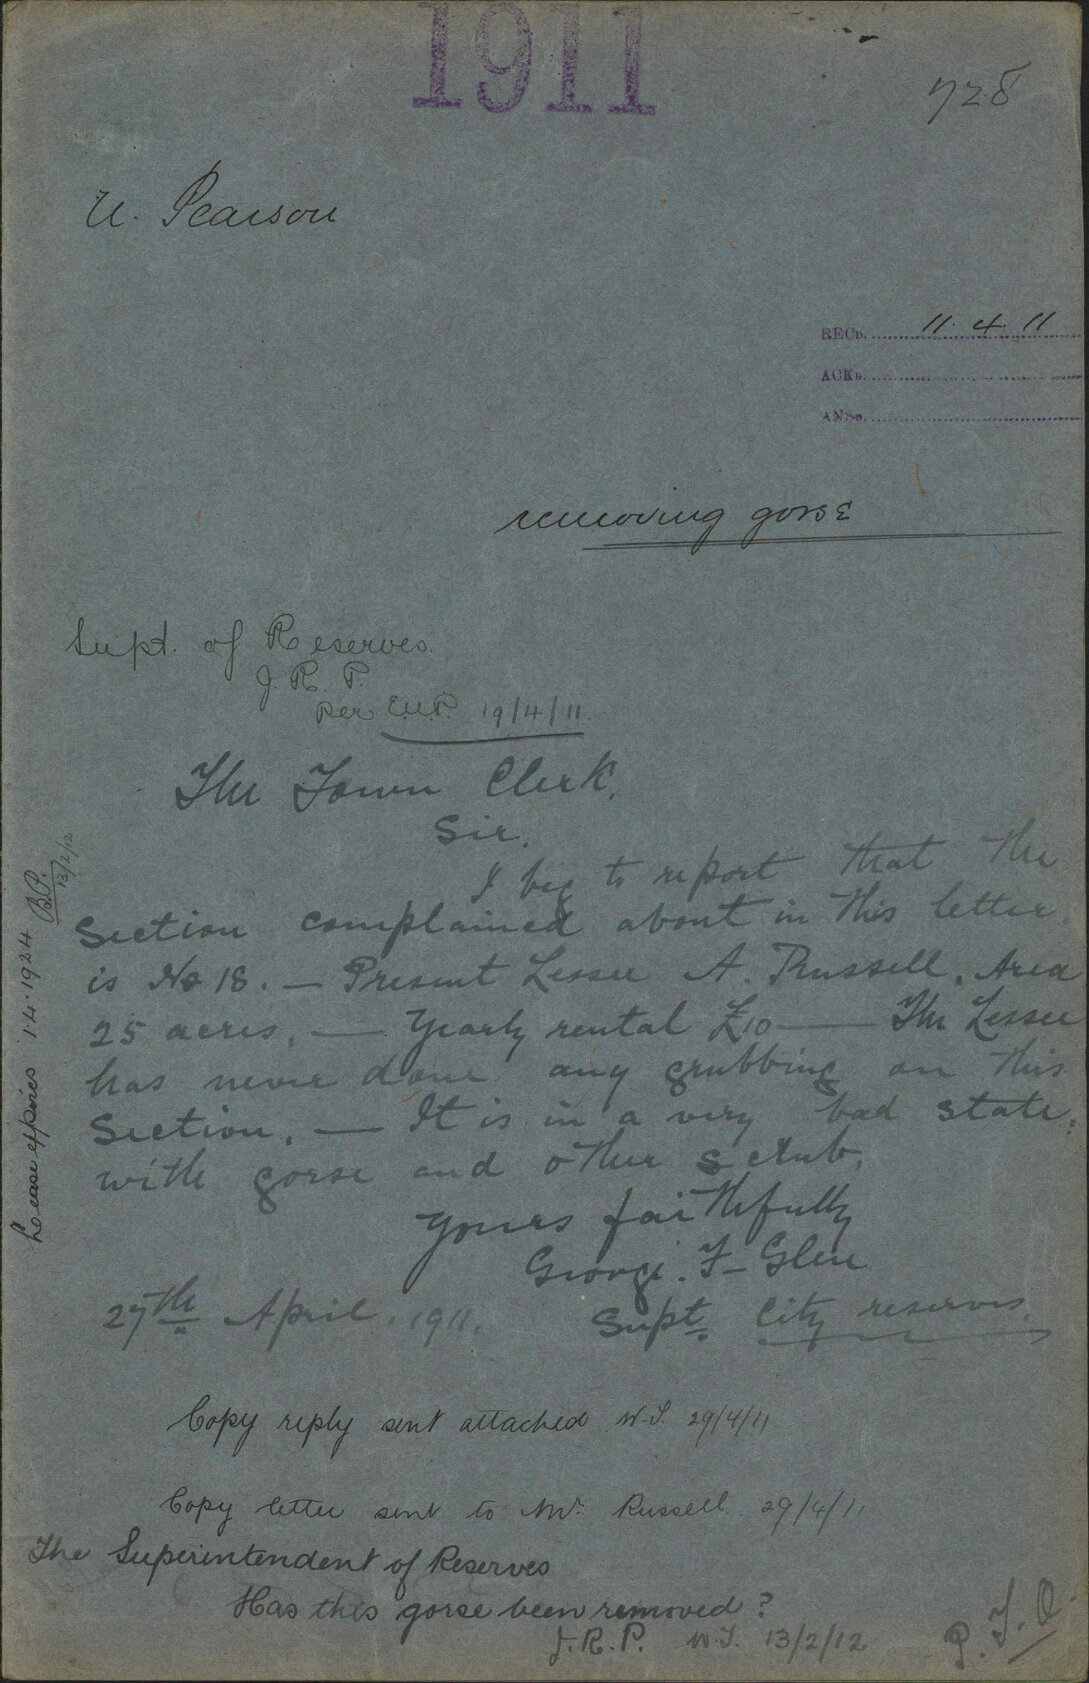 1911
728
U. Pearson
RECD. 11. 4. 11
ACKD.
ANSD.
removing gorse
Supt. of Reserves.
J. R. P.
per E.U.P. 19/4/11.
The Town Clerk.
Sir.
I beg to report that the
Section complained about in this letter
is No 18. — Present Lessee A. Russell. Area
25 acres. — Yearly rental £10 — The Lessee
has never done any grubbing on this
Section. — It is in a very bad state.
with gorse and other scrub.
Yours faithfully
George. F. Glen
27th April. 1911. Supt. City reserves
Lease expires 1·4·1924 B.P. 13/2/12
Copy reply sent attached. W.S. 29/4/11
Copy letter sent to Mr. Russell. 29/4/11
The Superintendent of Reserves
Has this gorse been removed?
J.R.P. 13/2/12
P.T.O.